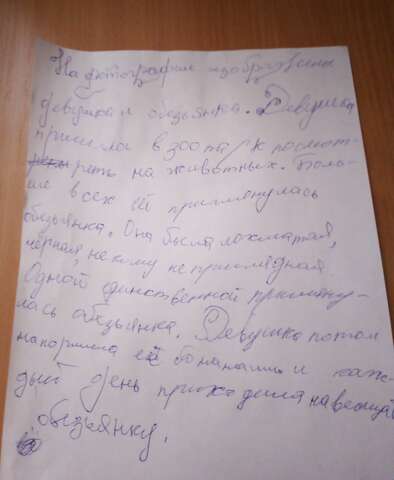 На фотографие изображены
девушка и обезьянка. Девушка
пришла в зоопарк посмот-
реть на животных. Боль-
ше всех ей приглянулась
обезьянка. Она была лохматая,
чёрная, некому неприглядная.
Одной единственной приглину-
лась обезьянка. Девушка потом
накормила её бонанами и каж-
дый день приходила навещать
обезьянку.